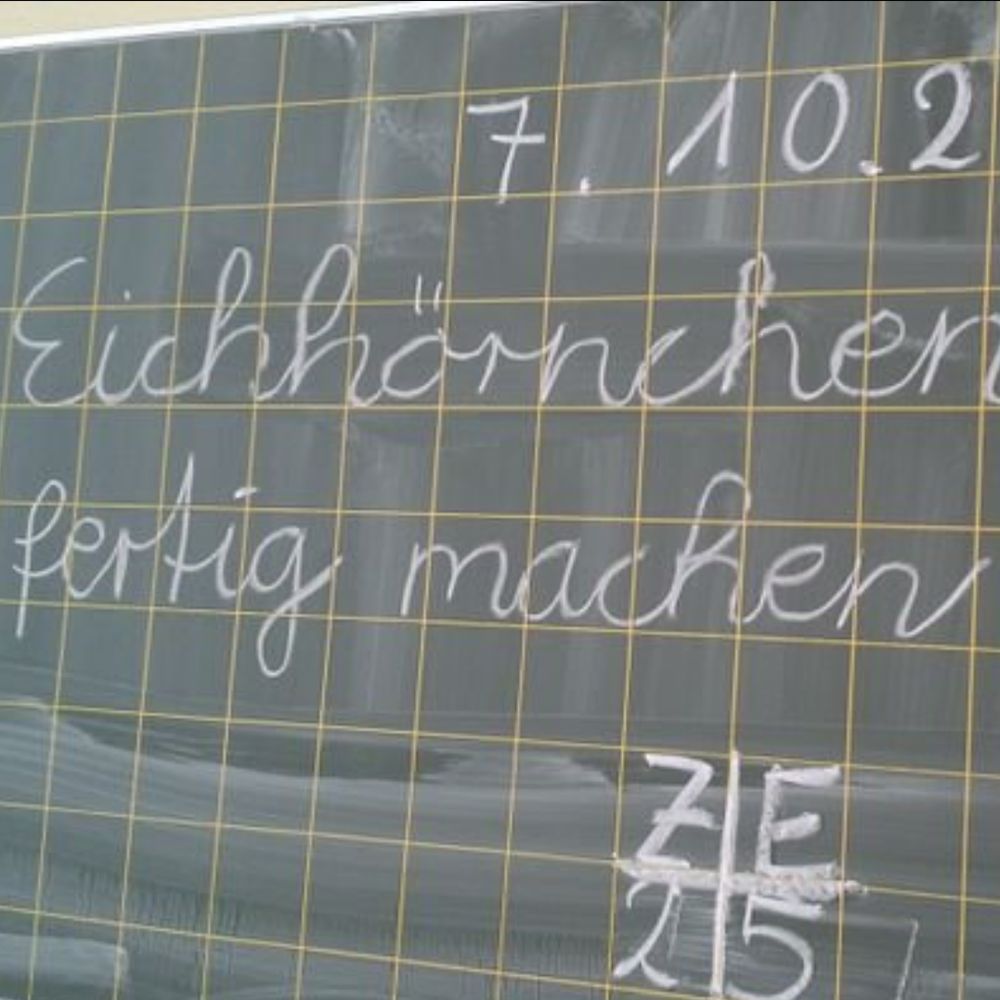 7.10.2
Eichhörnchen
fertig machen
Z E
2 5